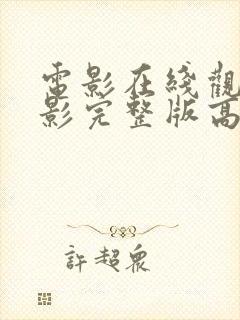 電影在綫觀
影完整版高
許超眾